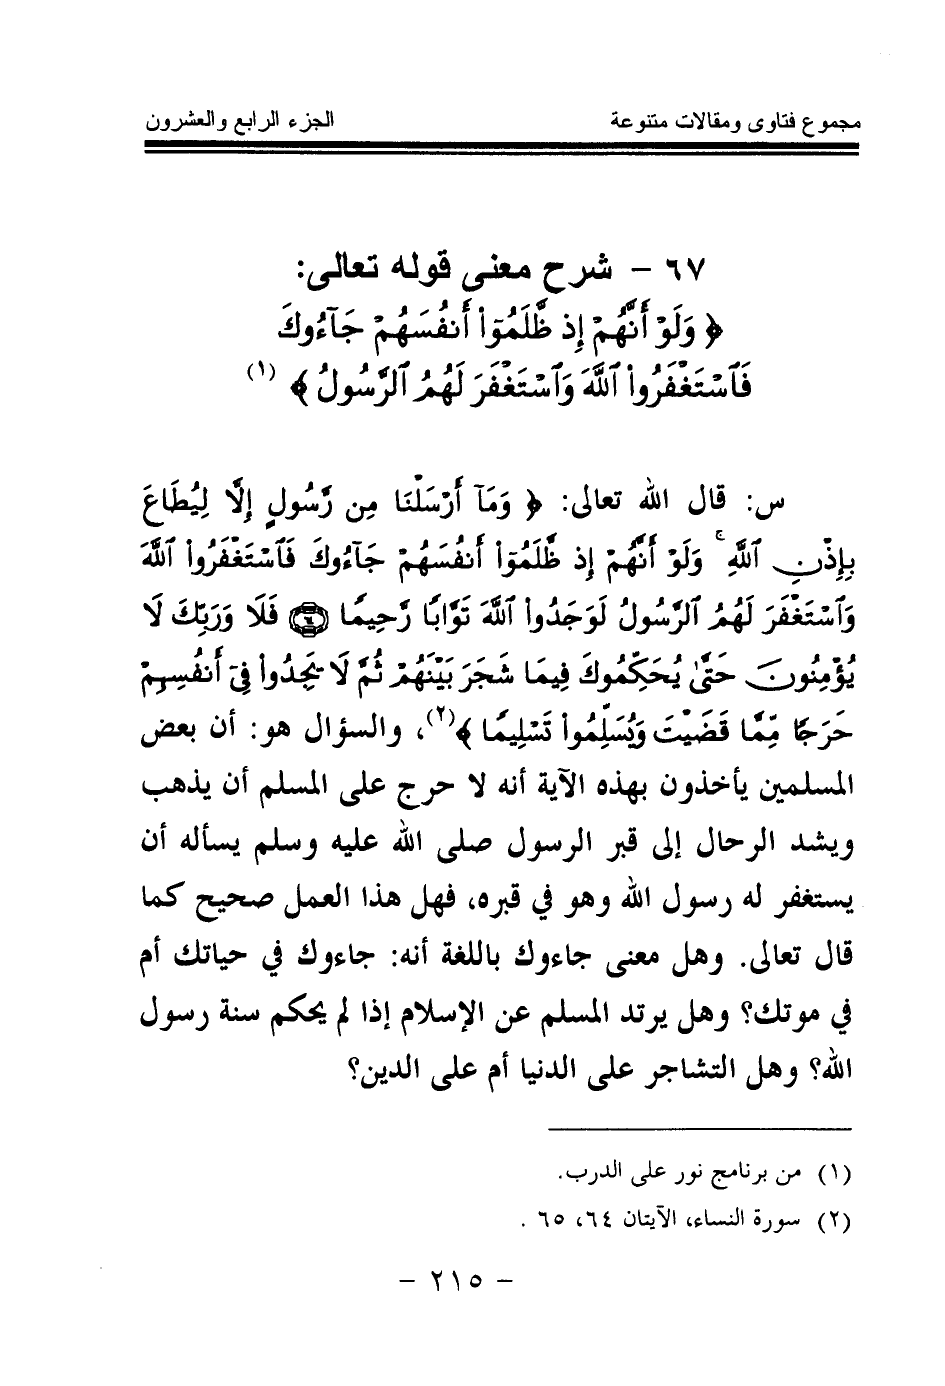 مجموع فتاوى ومقالات متنوعة الجزء الرابع والعشرون
٦٧ - شرح معنى قوله تعالى:
﴿ وَلَوْ أَنَّهُمْ إِذ ظَّلَمُوٓا۟ أَنفُسَهُمْ جَآءُوكَ
فَٱسْتَغْفَرُوا۟ ٱللَّهَ وَٱسْتَغْفَرَ لَهُمُ ٱلرَّسُولُ ﴾ (١)
س: قال الله تعالى: ﴿ وَمَآ أَرْسَلْنَا مِن رَّسُولٍ إِلَّا لِيُطَاعَ
بِإِذْنِ ٱللَّهِ ۚ وَلَوْ أَنَّهُمْ إِذ ظَّلَمُوٓا۟ أَنفُسَهُمْ جَآءُوكَ فَٱسْتَغْفَرُوا۟ ٱللَّهَ
وَٱسْتَغْفَرَ لَهُمُ ٱلرَّسُولُ لَوَجَدُوا۟ ٱللَّهَ تَوَّابًا رَّحِيمًا فَلَا وَرَبِّكَ لَا
يُؤْمِنُونَ حَتَّىٰ يُحَكِّمُوكَ فِيمَا شَجَرَ بَيْنَهُمْ ثُمَّ لَا يَجِدُوا۟ فِىٓ أَنفُسِهِمْ
حَرَجًا مِّمَّا قَضَيْتَ وَيُسَلِّمُوا۟ تَسْلِيمًا ﴾(٢)، والسؤال هو: أن بعض
المسلمين يأخذون بهذه الآية أنه لا حرج على المسلم أن يذهب
ويشد الرحال إلى قبر الرسول صلى الله عليه وسلم يسأله أن
يستغفر له رسول الله وهو في قبره، فهل هذا العمل صحيح كما
قال تعالى. وهل معنى جاءوك باللغة أنه: جاءوك في حياتك أم
في موتك؟ وهل يرتد المسلم عن الإسلام إذا لم يحكم سنة رسول
الله؟ وهل التشاجر على الدنيا أم على الدين؟
(١) من برنامج نور على الدرب.
(٢) سورة النساء، الآيتان ٦٤، ٦٥ .
- ٢١٥ -